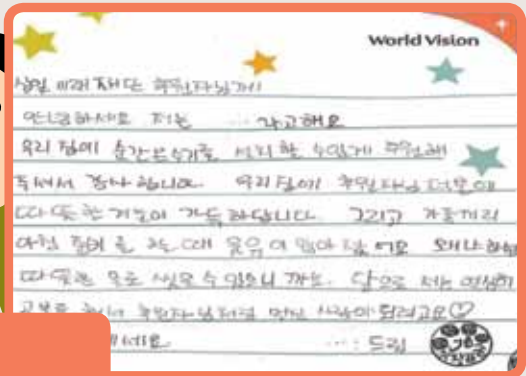 World Vision
삼일 미래 재단 후원자님께
안녕하세요 저는 ... 라고해요
우리 집에 순간온수기를 설치 할 수있게 후원해
주셔서 감사 합니다. 우리집에 후원자님 덕분에
따뜻한 기분이 가득하답니다. 그리고
아침 를 때 웃음이 왜냐하면
따뜻한 물로 씻을 수 있으니 까요. 앞으로 저는 열심히
공부를 해서 후원자님처럼 멋진 사람이 되려고요♡
세요
...: 드림